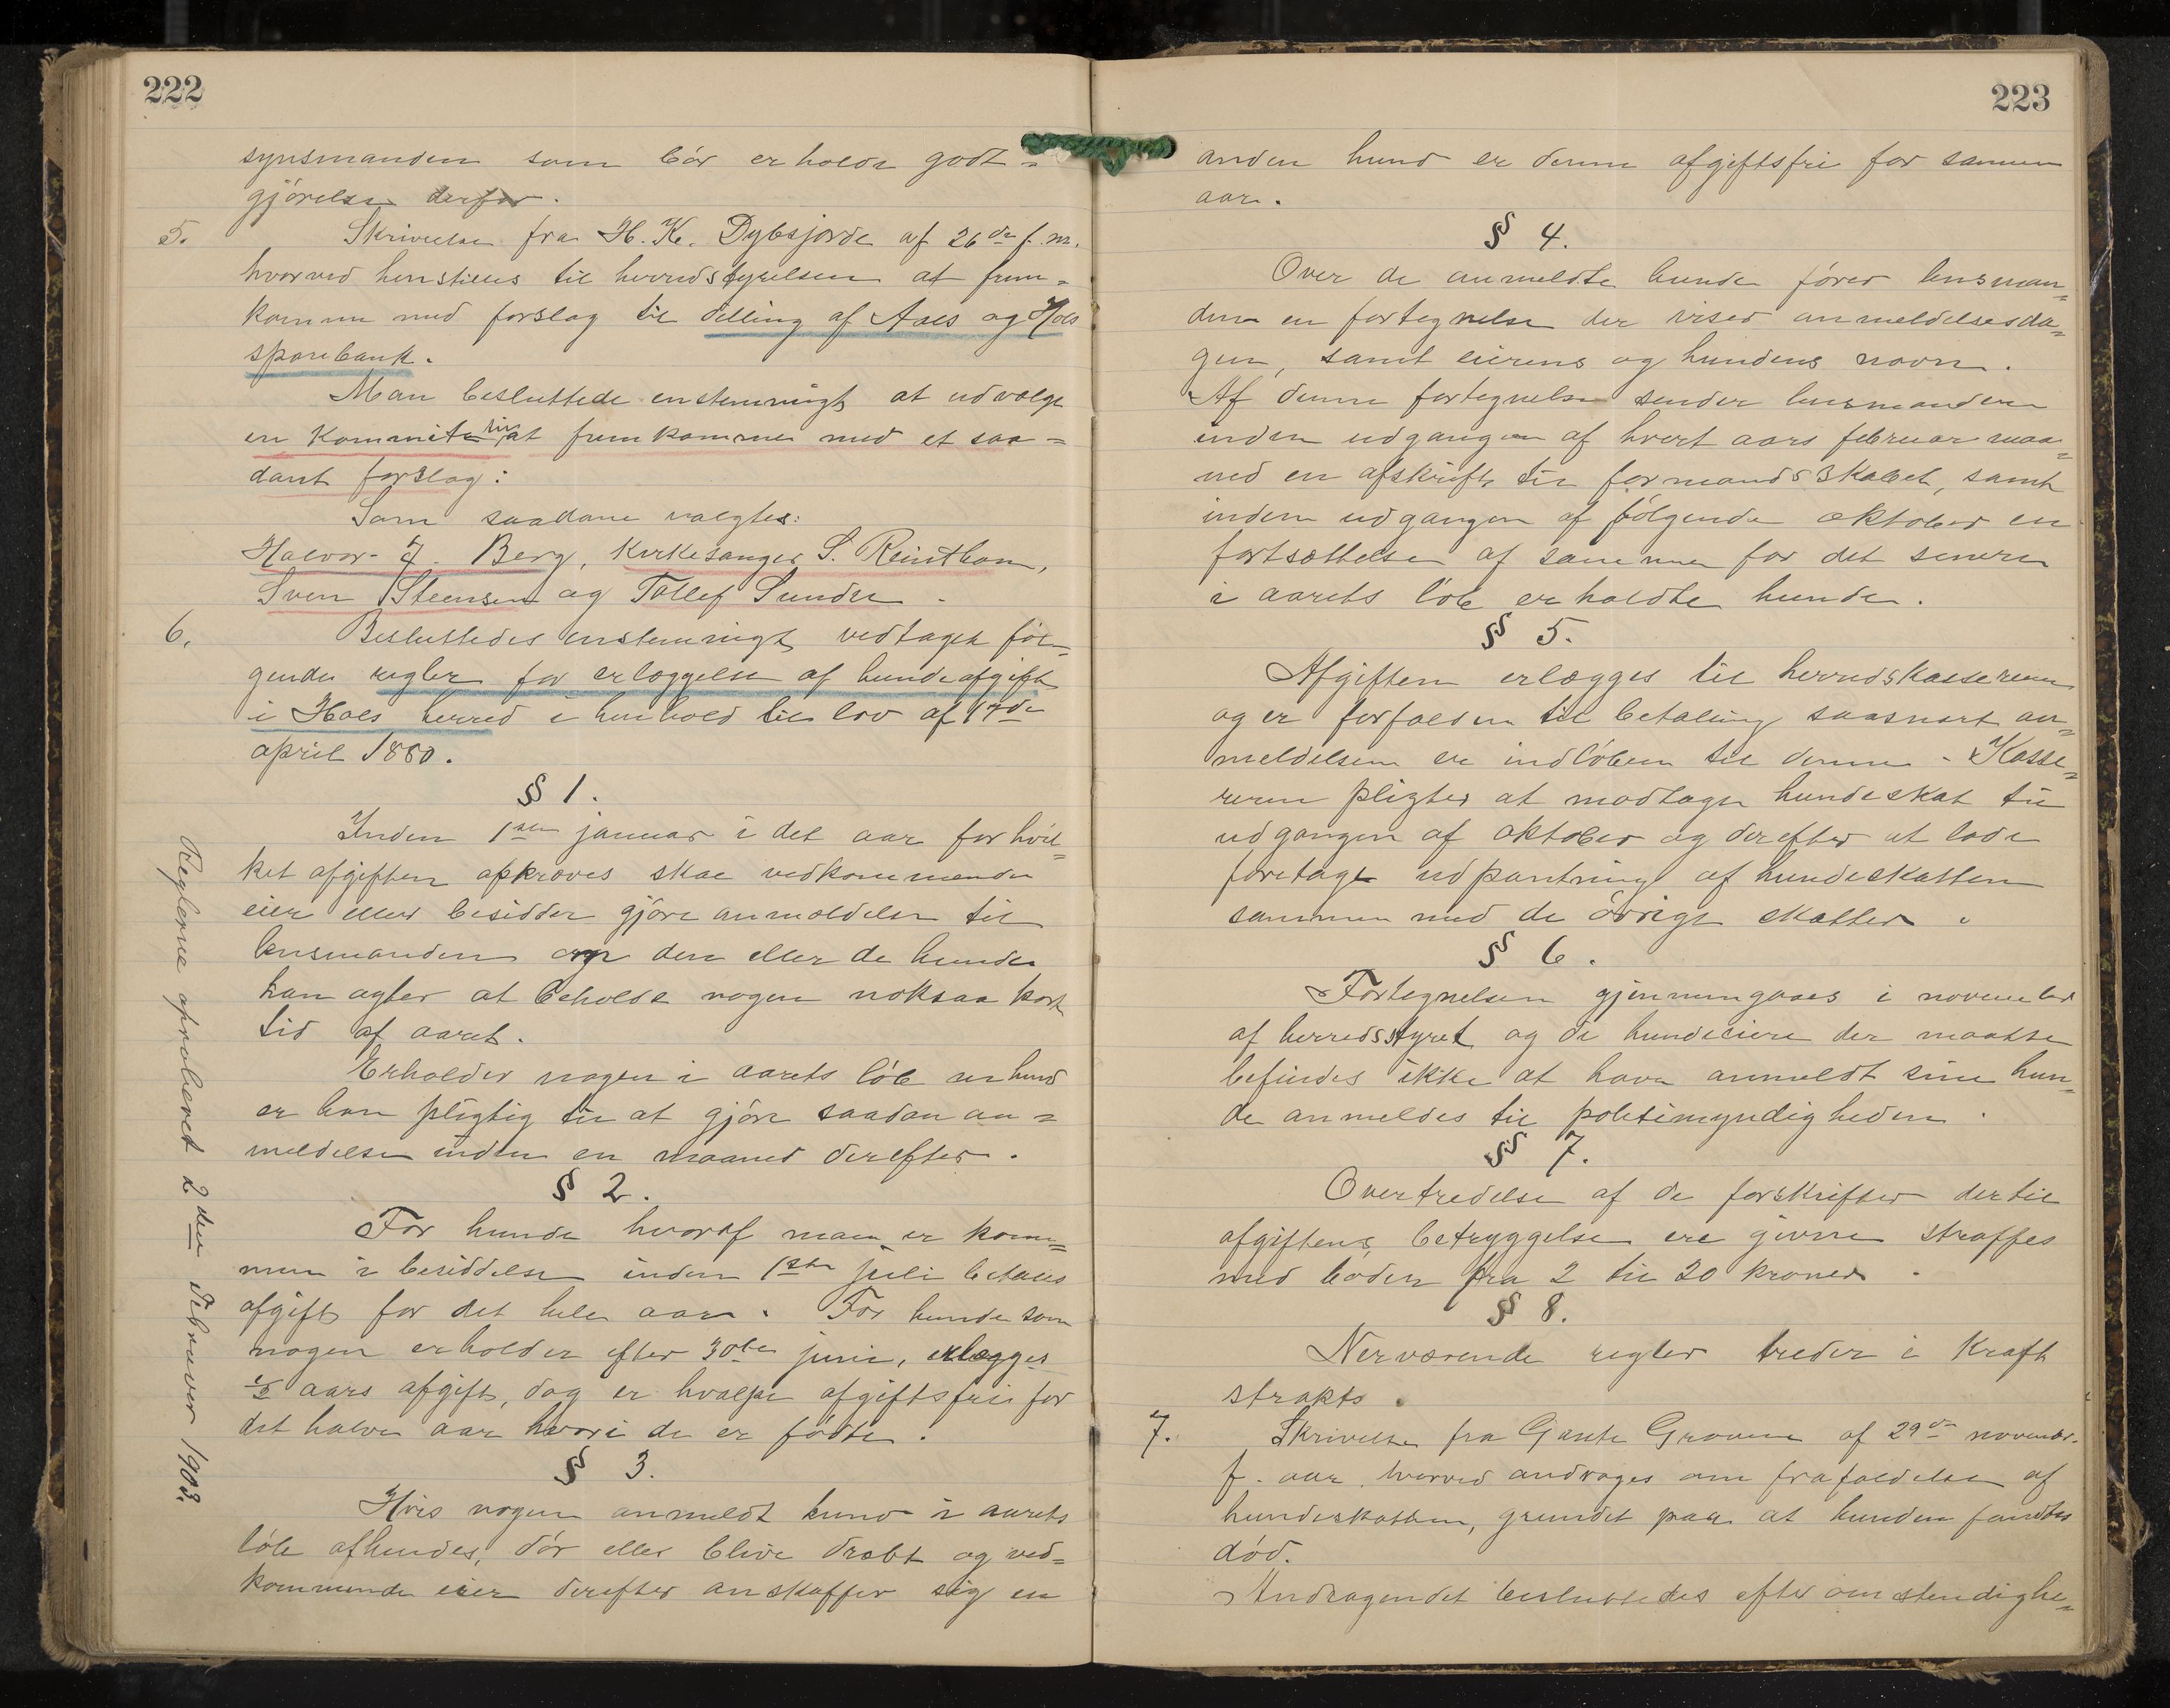 222
synsmanden som bör erholde godt-
gjörelse derfor.
5. Skrivelse fra H. K. Dybsjorde af 26de f. m.
hvorved henstilles til herredstyrelsen at frem-
komme med forslag til deling af Aals og Hols
sparebank.
Man besluttede enstemmigt at udvælge
en Kommite til at fremkomme med et saa-
dant forslag:
Som saadane valgtes:
Halvor J. Berg, Kirkesanger S. Reinton,
Sven Steensen og Tollef Sunde.
6. Besluttedes enstemmigt vedtaget föl-
gende regler for erlæggelse af hundeafgift
i Hols herred i henhold til lov af 17de
april 1880.
§ 1.
Inden 1ste januar i det aar for hvil-
ket afgiften opkræves skal vedkommende
eier eller besidder gjöre anmeldelse til
lensmanden om den eller de hunde
han agter at beholde nogen noksaa kort
tid af aaret.
Erholder nogen i aarets löb en hund
er han pligtig til at gjöre saadan an-
meldelse inden en maaned derefter.
§ 2.
For hunde hvoraf man er kom-
men i besiddelse inden 1ste juli betales
afgift for det hele aar. For hunde som
nogen erholder efter 30te juni, erlægges
½ aars afgift, dog er hvalpe afgiftsfrie for
det halve aar hvori de er födte.
§ 3.
Hvis nogen anmeldt hund i aarets
löb afhendes, dör eller blive dræbt og ved-
kommende eier derefter anskaffer sig en
Reglerne approberet 2den Februar 1903.
223
anden hund er denne afgiftsfri for samme
aar.
§ 4.
Over de anmeldte hunde förer lensman-
den en fortegnelse der viser anmeldelsesda-
gen, samt eierens og hundens navn.
Af denne fortegnelse sender lensmanden
inden udgangen af hvert aars februar maa-
ned en afskrift til formandsskabet, samt
inden udgangen af fölgende oktober en
fortsættelse af samme for det senere
i aarets löb erholdte hunde.
§ 5.
Afgiften erlægges til herredskassereren
og er forfalden til betaling saasnart an-
meldelsen er indlöben til denne. Kasse-
reren pligter at modtage hundeskat til
udgangen af oktober og derefter at lade
foretage udpantning af hundeskatten
sammen med de övrige skatter.
§ 6.
Fortegnelsen gjennemgaaes i november
af herredsstyret og de hundeeiere der maatte
befindes ikke at have anmeldt sine hun-
de anmeldes til politimyndigheden.
§ 7.
Overtrædelse af de forskrifter der til
afgiftens betryggelse ere givne straffes
med böder fra 2 til 20 kroner.
§ 8.
Nerværende regler treder i Kraft
strakts.
7. Skrivelse fra Gunte Grovene af 29de novembr.
f. aar, hvorved andrages om frafaldelse af
hundeskatten, grundet paa at hunden fandtes
död.
Andragendet besluttedes efter omstendighe-